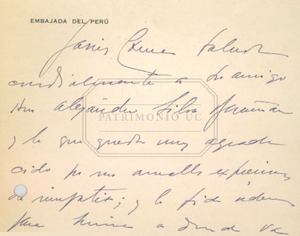 EMBAJADA DEL PERÚ
Javier Correa saluda
cordialmente a su amigo
don Alejandro Silva
y le queda muy agrade
cido por sus amables expresiones
de simpatía; y le pide
para a donde va
PATRIMONIO UC